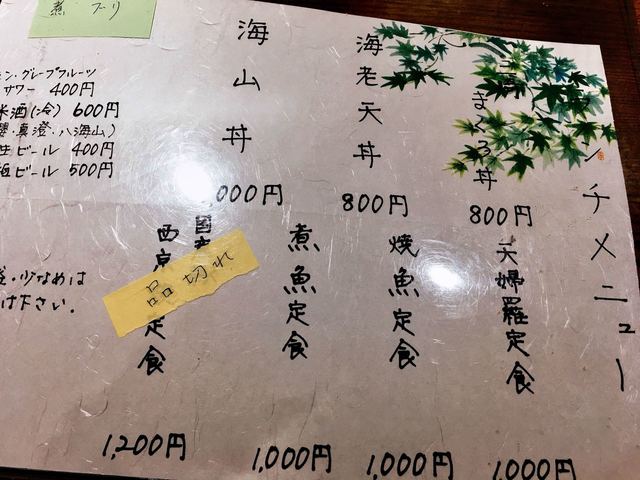 ンチメニュー
まぐろ丼
800円
海老天丼
800円
海山丼
000円
天婦羅定食
1,000円
焼魚定食
1,000円
煮魚定食
1,000円
国産
西京
定食
1,200円
品切れ
煮ブリ
ン・グレープフルーツ
サワー 400円
米酒(冷) 600円
真澄・八海山)
生ビール 400円
ビール 500円
少なめは
け下さい.